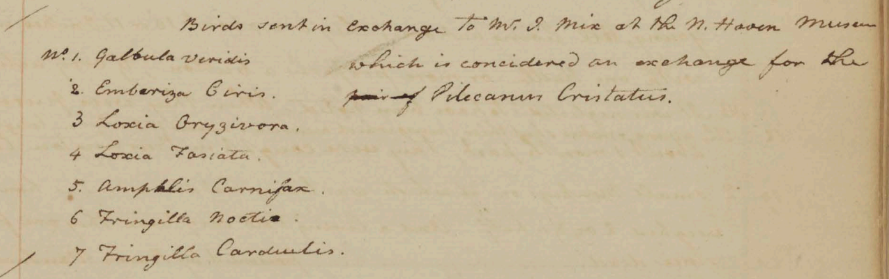 Birds sent in exchange to Mr. J. Mix at the N. Haven Museum
which is concidered an exchange for the
pair of Pilecanus Cristatus.
No. 1. Galbula veridis
2. Emberiza Ciris.
3 Loxia Oryzivora.
4 Loxia Fasiata.
5. Amphlis Carnifax.
6 Fringilla Noctis.
7 Fringilla Carduulis.